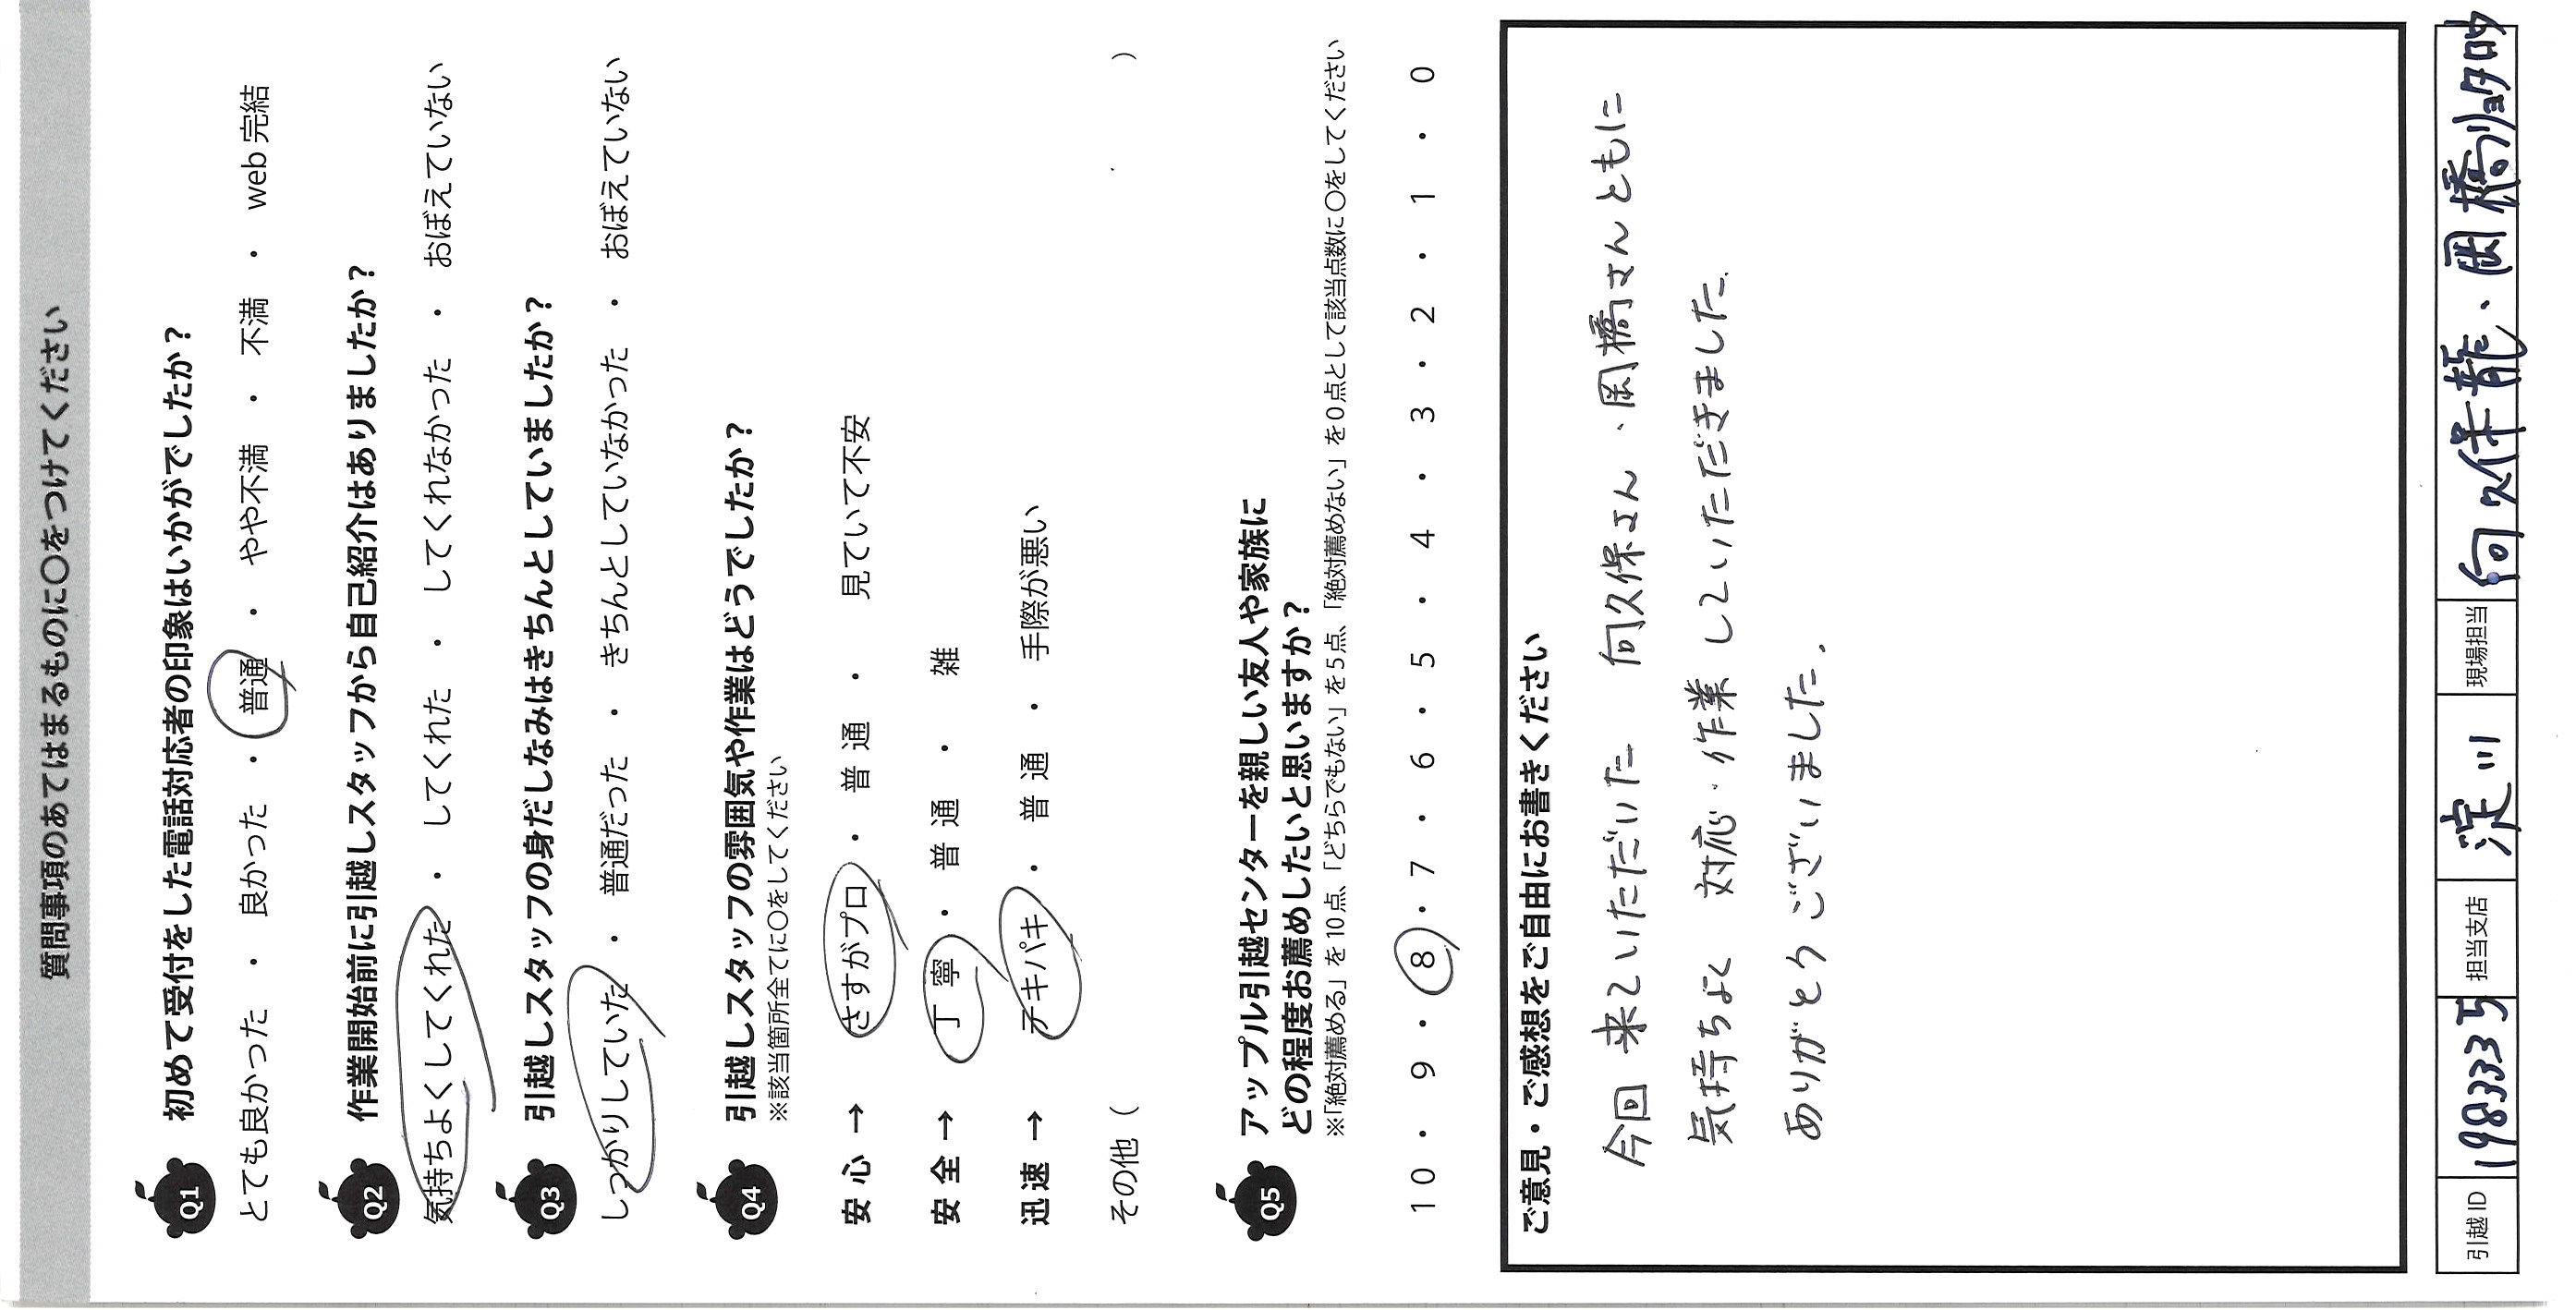 質問事項のあてはまるものに〇をつけてください
Q1 初めて受付をした電話対応者の印象はいかがでしたか？
とても良かった ・ 良かった ・ 普通 ・ やや不満 ・ 不満 ・ web完結
Q2 作業開始前に引越しスタッフから自己紹介はありましたか？
気持ちよくしてくれた ・ してくれた ・ してくれなかった ・ おぼえていない
Q3 引越しスタッフの身だしなみはきちんとしていましたか？
しっかりしていた ・ 普通だった ・ きちんとしていなかった ・ おぼえていない
Q4 引越しスタッフの雰囲気や作業はどうでしたか？
※該当箇所全てに〇をしてください
安心 → さすがプロ ・ 普通 ・ 見ていて不安
安全 → 丁寧 ・ 普通 ・ 雑
迅速 → テキパキ ・ 普通 ・ 手際が悪い
その他（ ）
Q5 アップル引越センターを親しい友人や家族に
どの程度お薦めしたいと思いますか？
※「絶対薦める」を10点、「どちらでもない」を5点、「絶対薦めない」を0点として該当点数に〇をしてください
10 ・ 9 ・ 8 ・ 7 ・ 6 ・ 5 ・ 4 ・ 3 ・ 2 ・ 1 ・ 0
ご意見・ご感想をご自由にお書きください
今回 来ていただいた 向久保さん、岡橋さんともに
気持ちよく 対応・作業していただきました。
ありがとうございました。
引越ID 1983335 担当支店 淀川 現場担当 向久保龍、岡橋リョタロウ